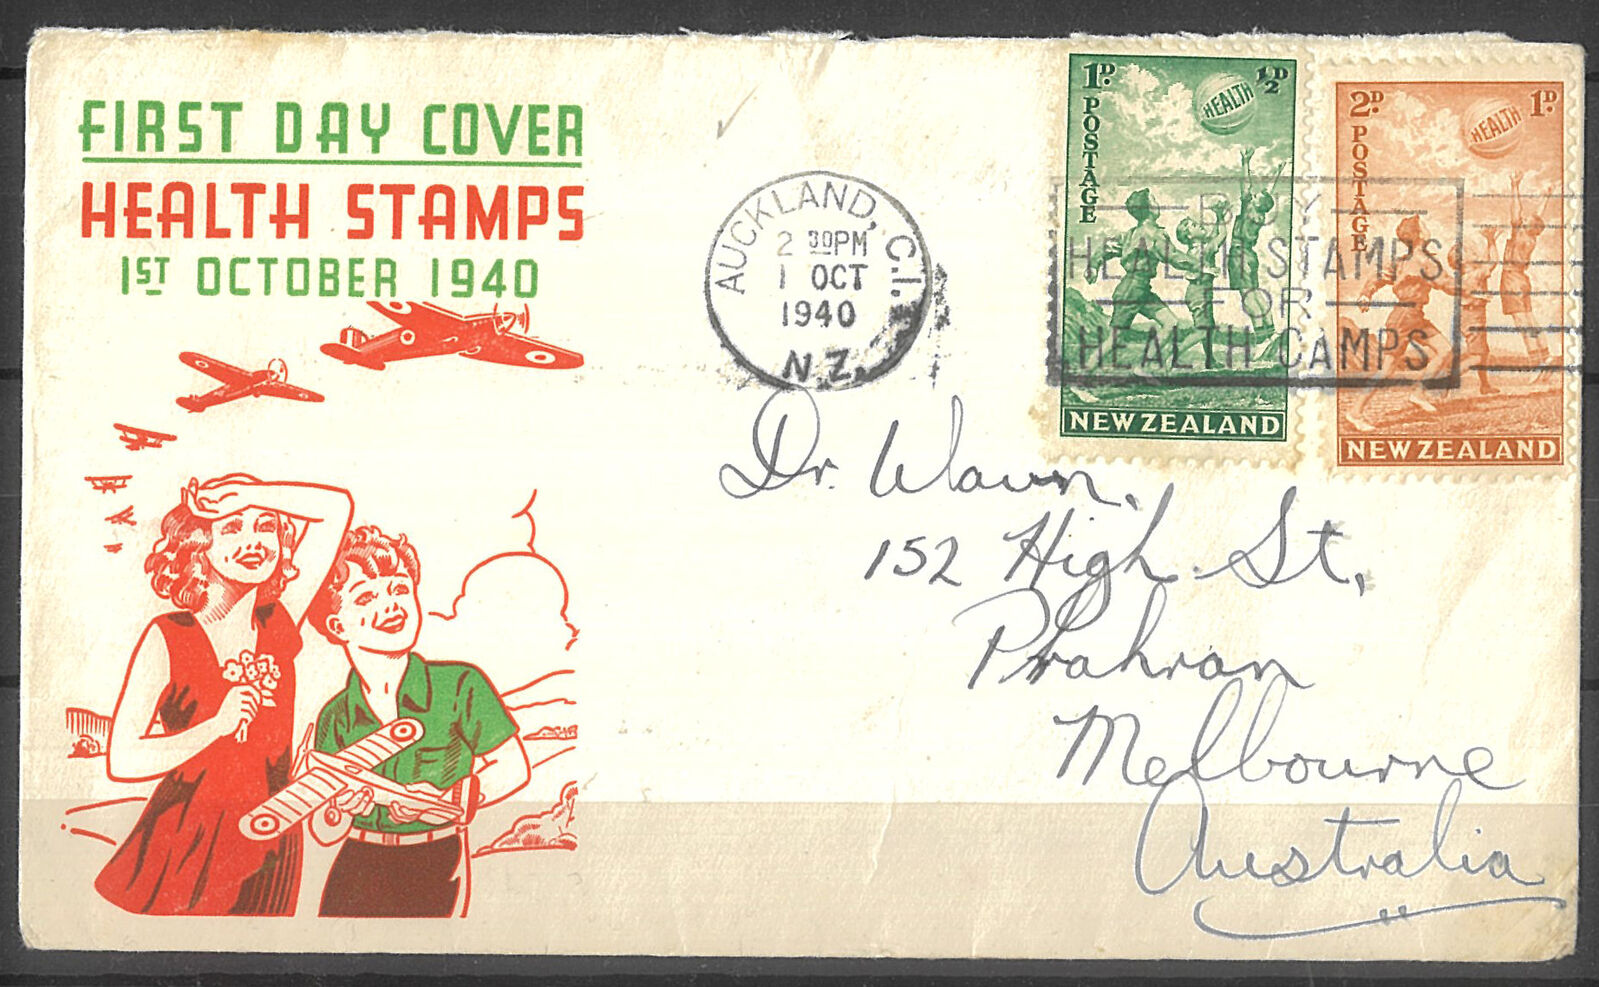 FIRST DAY COVER
HEALTH STAMPS
1ST OCTOBER 1940
AUCKLAND, C.I.
2 30PM
1 OCT
1940
N.Z.
1D. POSTAGE ½D
HEALTH
NEW ZEALAND
2D. POSTAGE 1D.
HEALTH
NEW ZEALAND
BUY
HEALTH STAMPS
FOR
HEALTH CAMPS
Dr.
152 High St,
Prahran
Melbourne
Australia